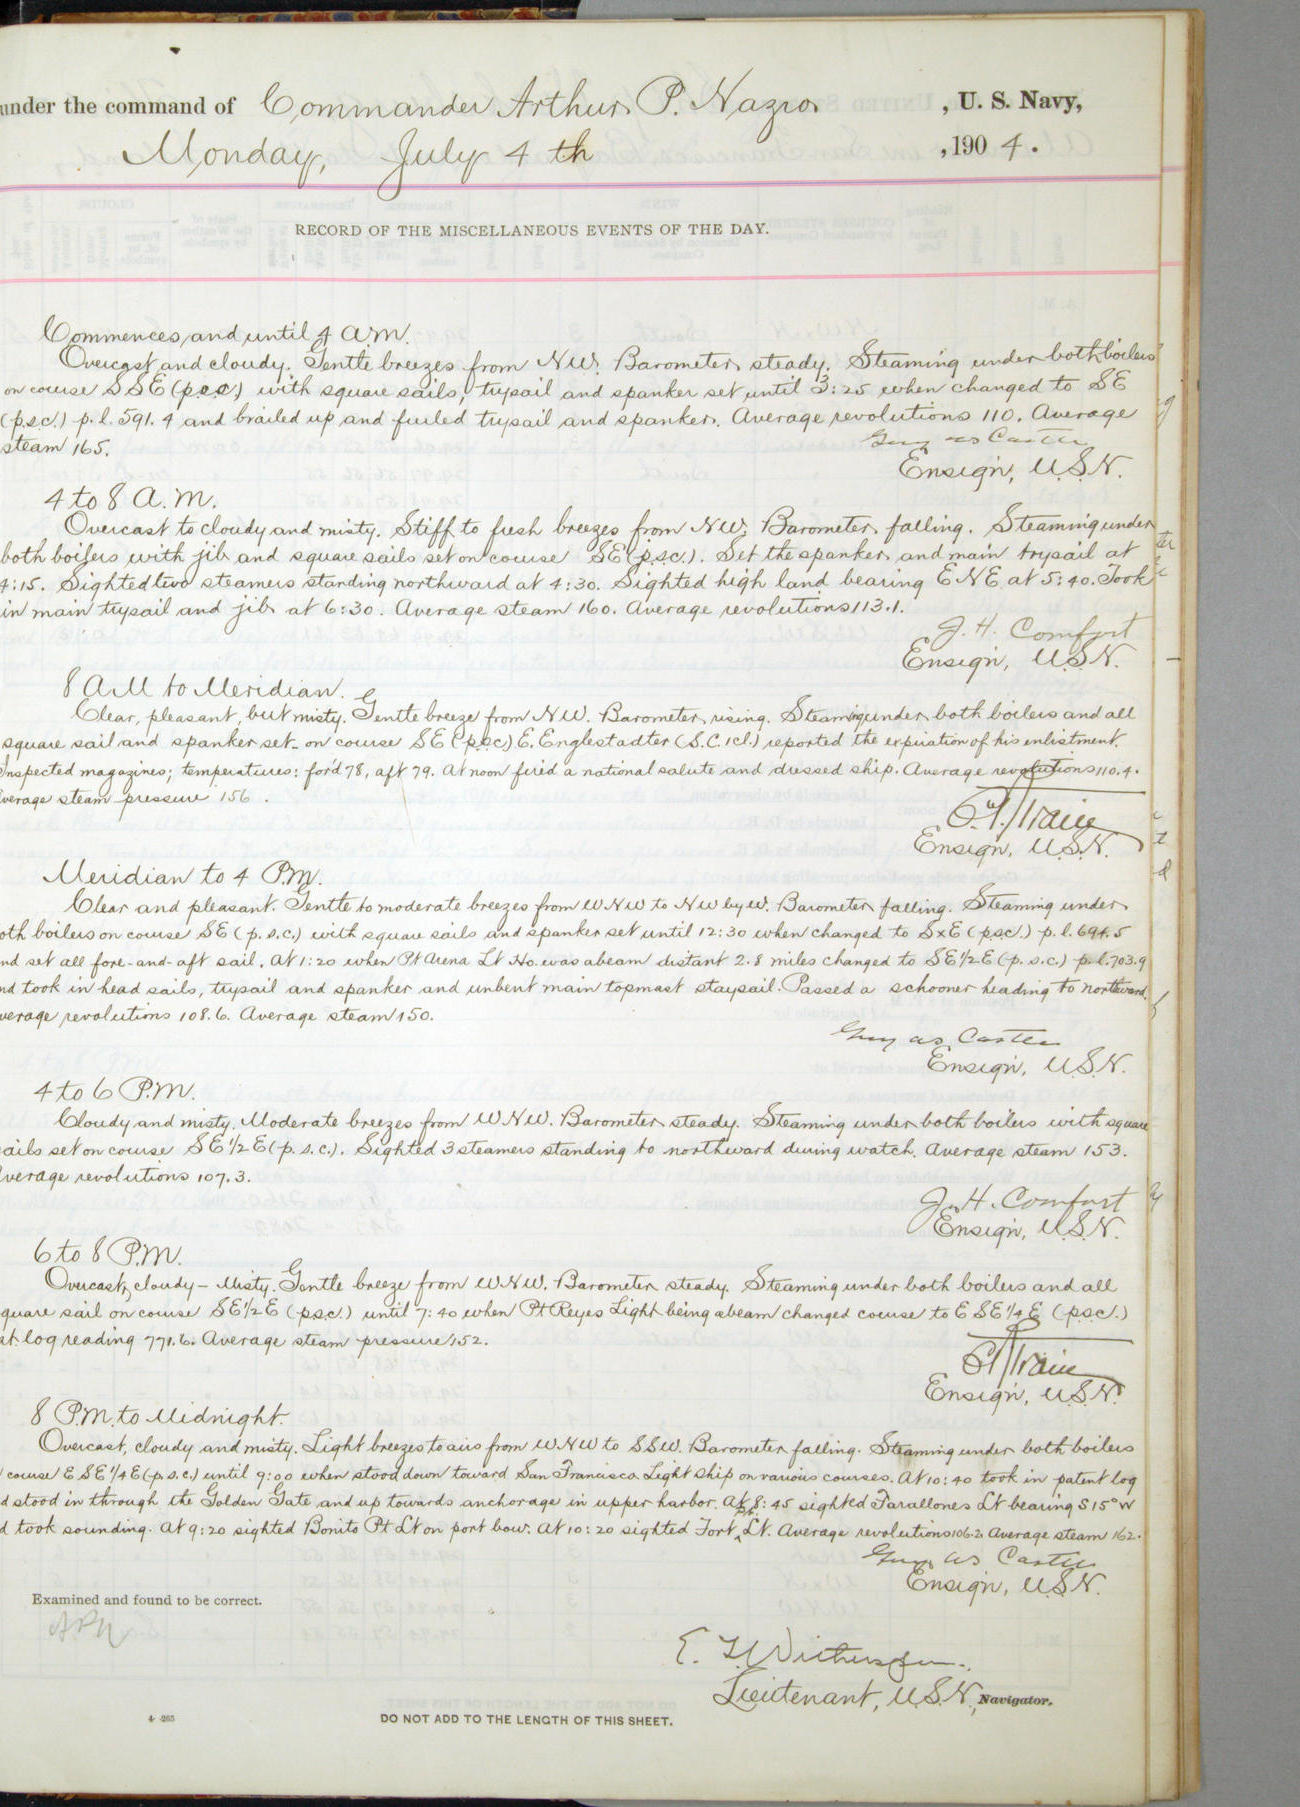 under the command of Commander Arthur P. Nazro, U. S. Navy,
Monday, July 4th, 1904.
RECORD OF THE MISCELLANEOUS EVENTS OF THE DAY.
Commences and until 4 A.M.
Overcast and cloudy. Gentle breezes from NW. Barometer steady. Steaming under both boilers
on course SSE (p.s.c.) with square sails, trysail and spanker set until 3:25 when changed to SE
(p.s.c.) p.l. 591.4 and brailed up and furled trysail and spanker. Average revolutions 110. Average
steam 165.
Guy W S Castle
Ensign, U.S.N.
4 to 8 A.M.
Overcast to cloudy and misty. Stiff to fresh breezes from NW. Barometer falling. Steaming under
both boilers with jib and square sails set on course SE (p.s.c.). Set the spanker and main trysail at
4:15. Sighted two steamers standing northward at 4:30. Sighted high land bearing ENE at 5:40. Took
in main trysail and jib at 6:30. Average steam 160. Average revolutions 113.1.
J. H. Comfort
Ensign, U.S.N.
8 AM to Meridian.
Clear, pleasant, but misty. Gentle breeze from NW. Barometer rising. Steaming under both boilers and all
square sail and spanker set on course SE (p.s.c) E. Englestadter (S.C. 1cl.) reported the expiration of his enlistment.
Inspected magazines; temperatures: for'd 78, aft 79. At noon fired a national salute and dressed ship. Average revolutions 110.4.
verage steam pressure 156.
Train
Ensign, U.S.N.
Meridian to 4 P.M.
Clear and pleasant. Gentle to moderate breezes from WNW to NW by W. Barometer falling. Steaming under
oth boilers on course SE (p.s.c.) with square sails and spanker set until 12:30 when changed to SxE (p.s.c.) p.l. 694.5
nd set all fore-and-aft sail. At 1:20 when Pt Arena Lt Ho. was abeam distant 2.8 miles changed to SE½E (p.s.c.) p.l. 703.9
nd took in head sails, trysail and spanker and unbent main topmast staysail. Passed a schooner heading to northward.
verage revolutions 108.6. Average steam 150.
Guy W S Castle
Ensign, U.S.N.
4 to 6 P.M.
Cloudy and misty. Moderate breezes from WNW. Barometer steady. Steaming under both boilers with square
ails set on course SE½E (p.s.c.). Sighted 3 steamers standing to northward during watch. Average steam 153.
verage revolutions 107.3.
J. H. Comfort
Ensign, U.S.N.
6 to 8 P.M.
Overcast, cloudy - misty. Gentle breeze from WNW. Barometer steady. Steaming under both boilers and all
quare sail on course SE½E (p.s.c.) until 7:40 when Pt Reyes Light being abeam changed course to ESE¼E (p.s.c.)
at log reading 771.6. Average steam pressure 152.
Train
Ensign, U.S.N.
8 P.M. to Midnight.
Overcast, cloudy and misty. Light breezes to airs from WNW to SSW. Barometer falling. Steaming under both boilers
course ESE¼E (p.s.c.) until 9:00 when stood down toward San Francisco Light Ship on various courses. At 10:40 took in patent log
d stood in through the Golden Gate and up towards anchorage in upper harbor. At 8:45 sighted Farallones Lt bearing S15°W
d took sounding. At 9:20 sighted Bonito Pt Lt on port bow. At 10:20 sighted Fort Pt. Lt. Average revolutions 106.2. Average steam 162.
Guy W S Castle
Ensign, U.S.N.
Examined and found to be correct.
APN
Lieutenant, U.S.N., Navigator.
4-265
DO NOT ADD TO THE LENGTH OF THIS SHEET.